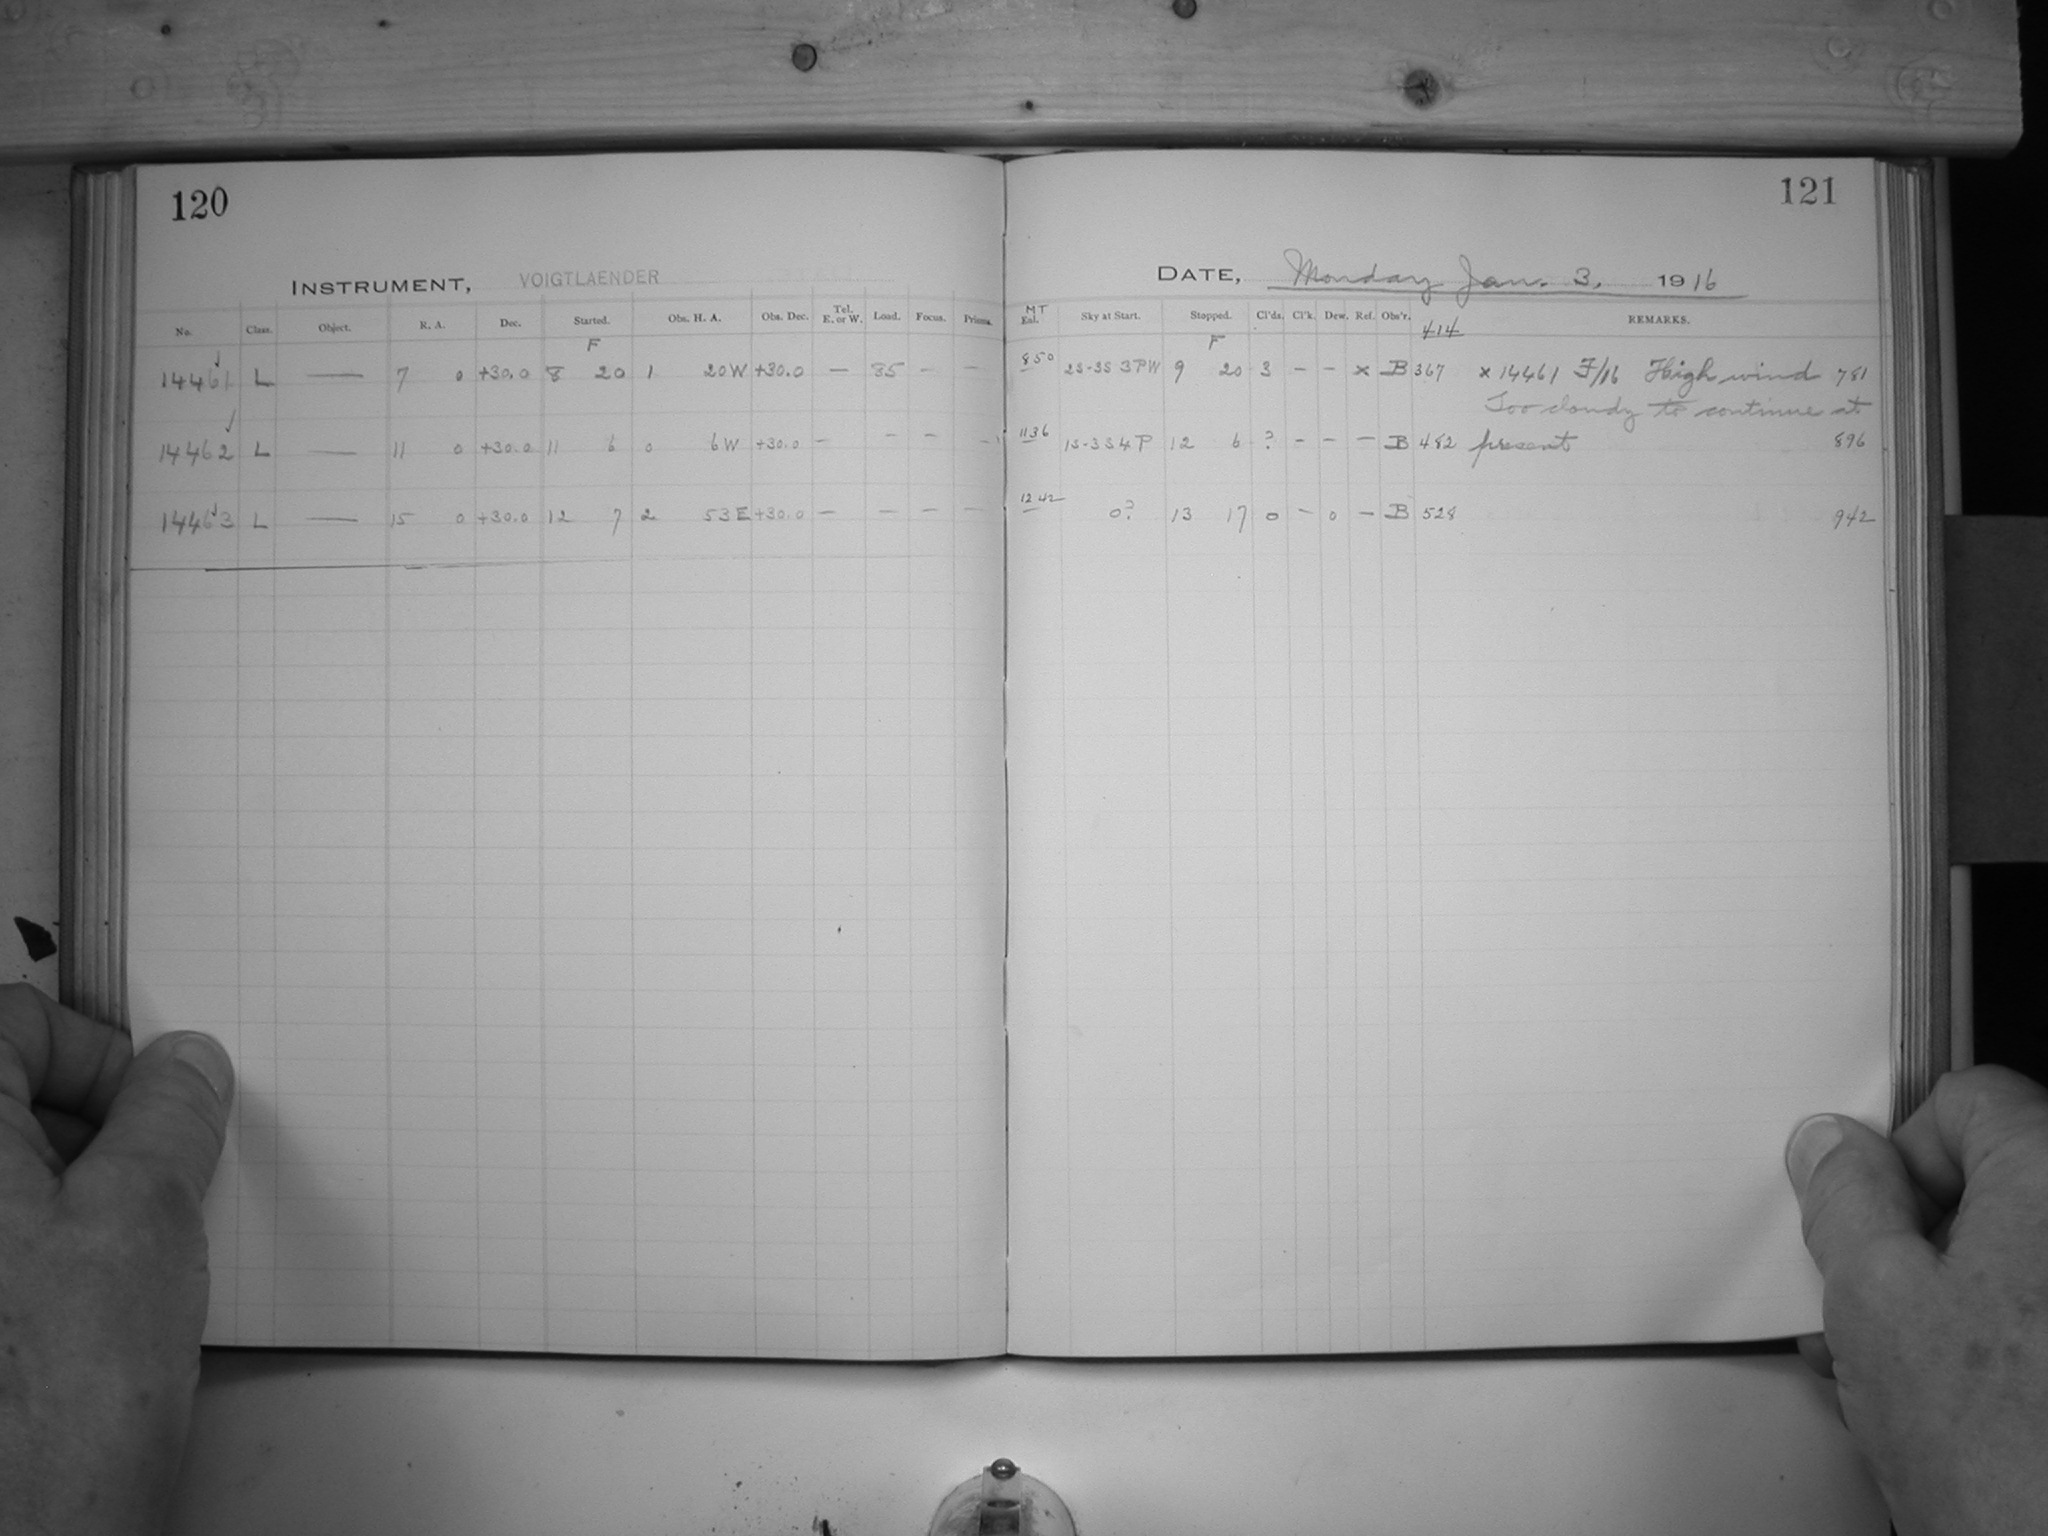 120
INSTRUMENT, VOIGTLAENDER
No. Class. Object. R. A. Dec. Started. Obs. H. A. Obs. Dec. Tel. E. or W. Load. Focus. Prisms.
F
14461 L — 7 0 +30.0 8 20 1 20W +30.0 — 35 - —
14462 L — 11 0 +30.0 11 6 0 6W +30.0 — - - -
14463 L — 15 0 +30.0 12 7 2 53E +30.0 — — — —
121
DATE, Monday Jan. 3, 1916
MT
Sky at Start. Stopped. Cl'ds. Cl'k. Dew. Ref. Obs'r. 414 REMARKS.
F
850 2S-3S 3PW 9 20 3 - - x B 367 x 14461 F/16 High wind 781
Too cloudy to continue at
1136 1S-3S4P 12 6 ? - - - B 482 present 896
1242 0? 13 17 0 - 0 - B 528 942